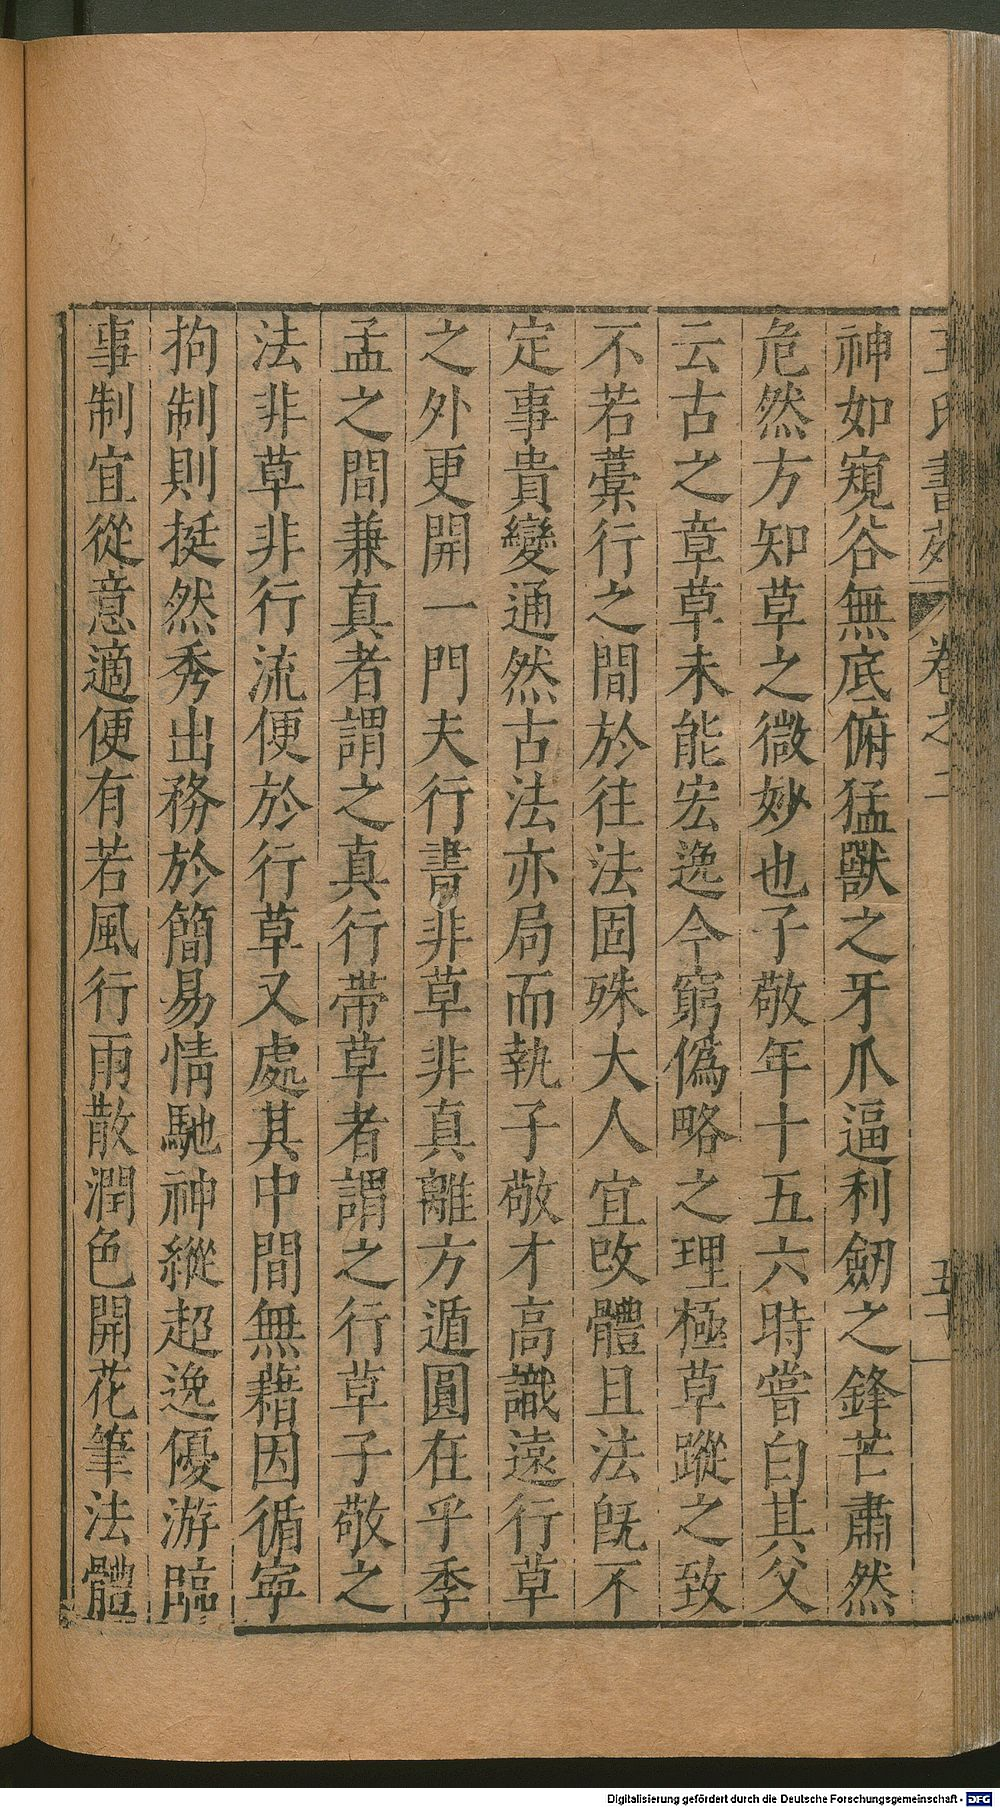 王氏書苑 卷之二 五十一
神如窺谷無底俯猛獸之牙爪逼利劒之鋒芒肅然
危然方知草之微妙也子敬年十五六時嘗白其父
云古之章草未能宏逸今窮僞略之理極草蹤之致
不若藁行之間於往法固殊大人宜改體且法旣不
定事貴變通然古法亦局而執子敬才高識遠行草
之外更開一門夫行書非草非真離方遁圓在乎季
孟之間兼真者謂之真行帶草者謂之行草子敬之
法非草非行流便於行草又處其中間無藉因循寜
拘制則挺然秀出務於簡易情馳神縱超逸優游臨
事制宜從意適便有若風行雨散潤色開花筆法體
Digitalisierung gefördert durch die Deutsche Forschungsgemeinschaft - DFG